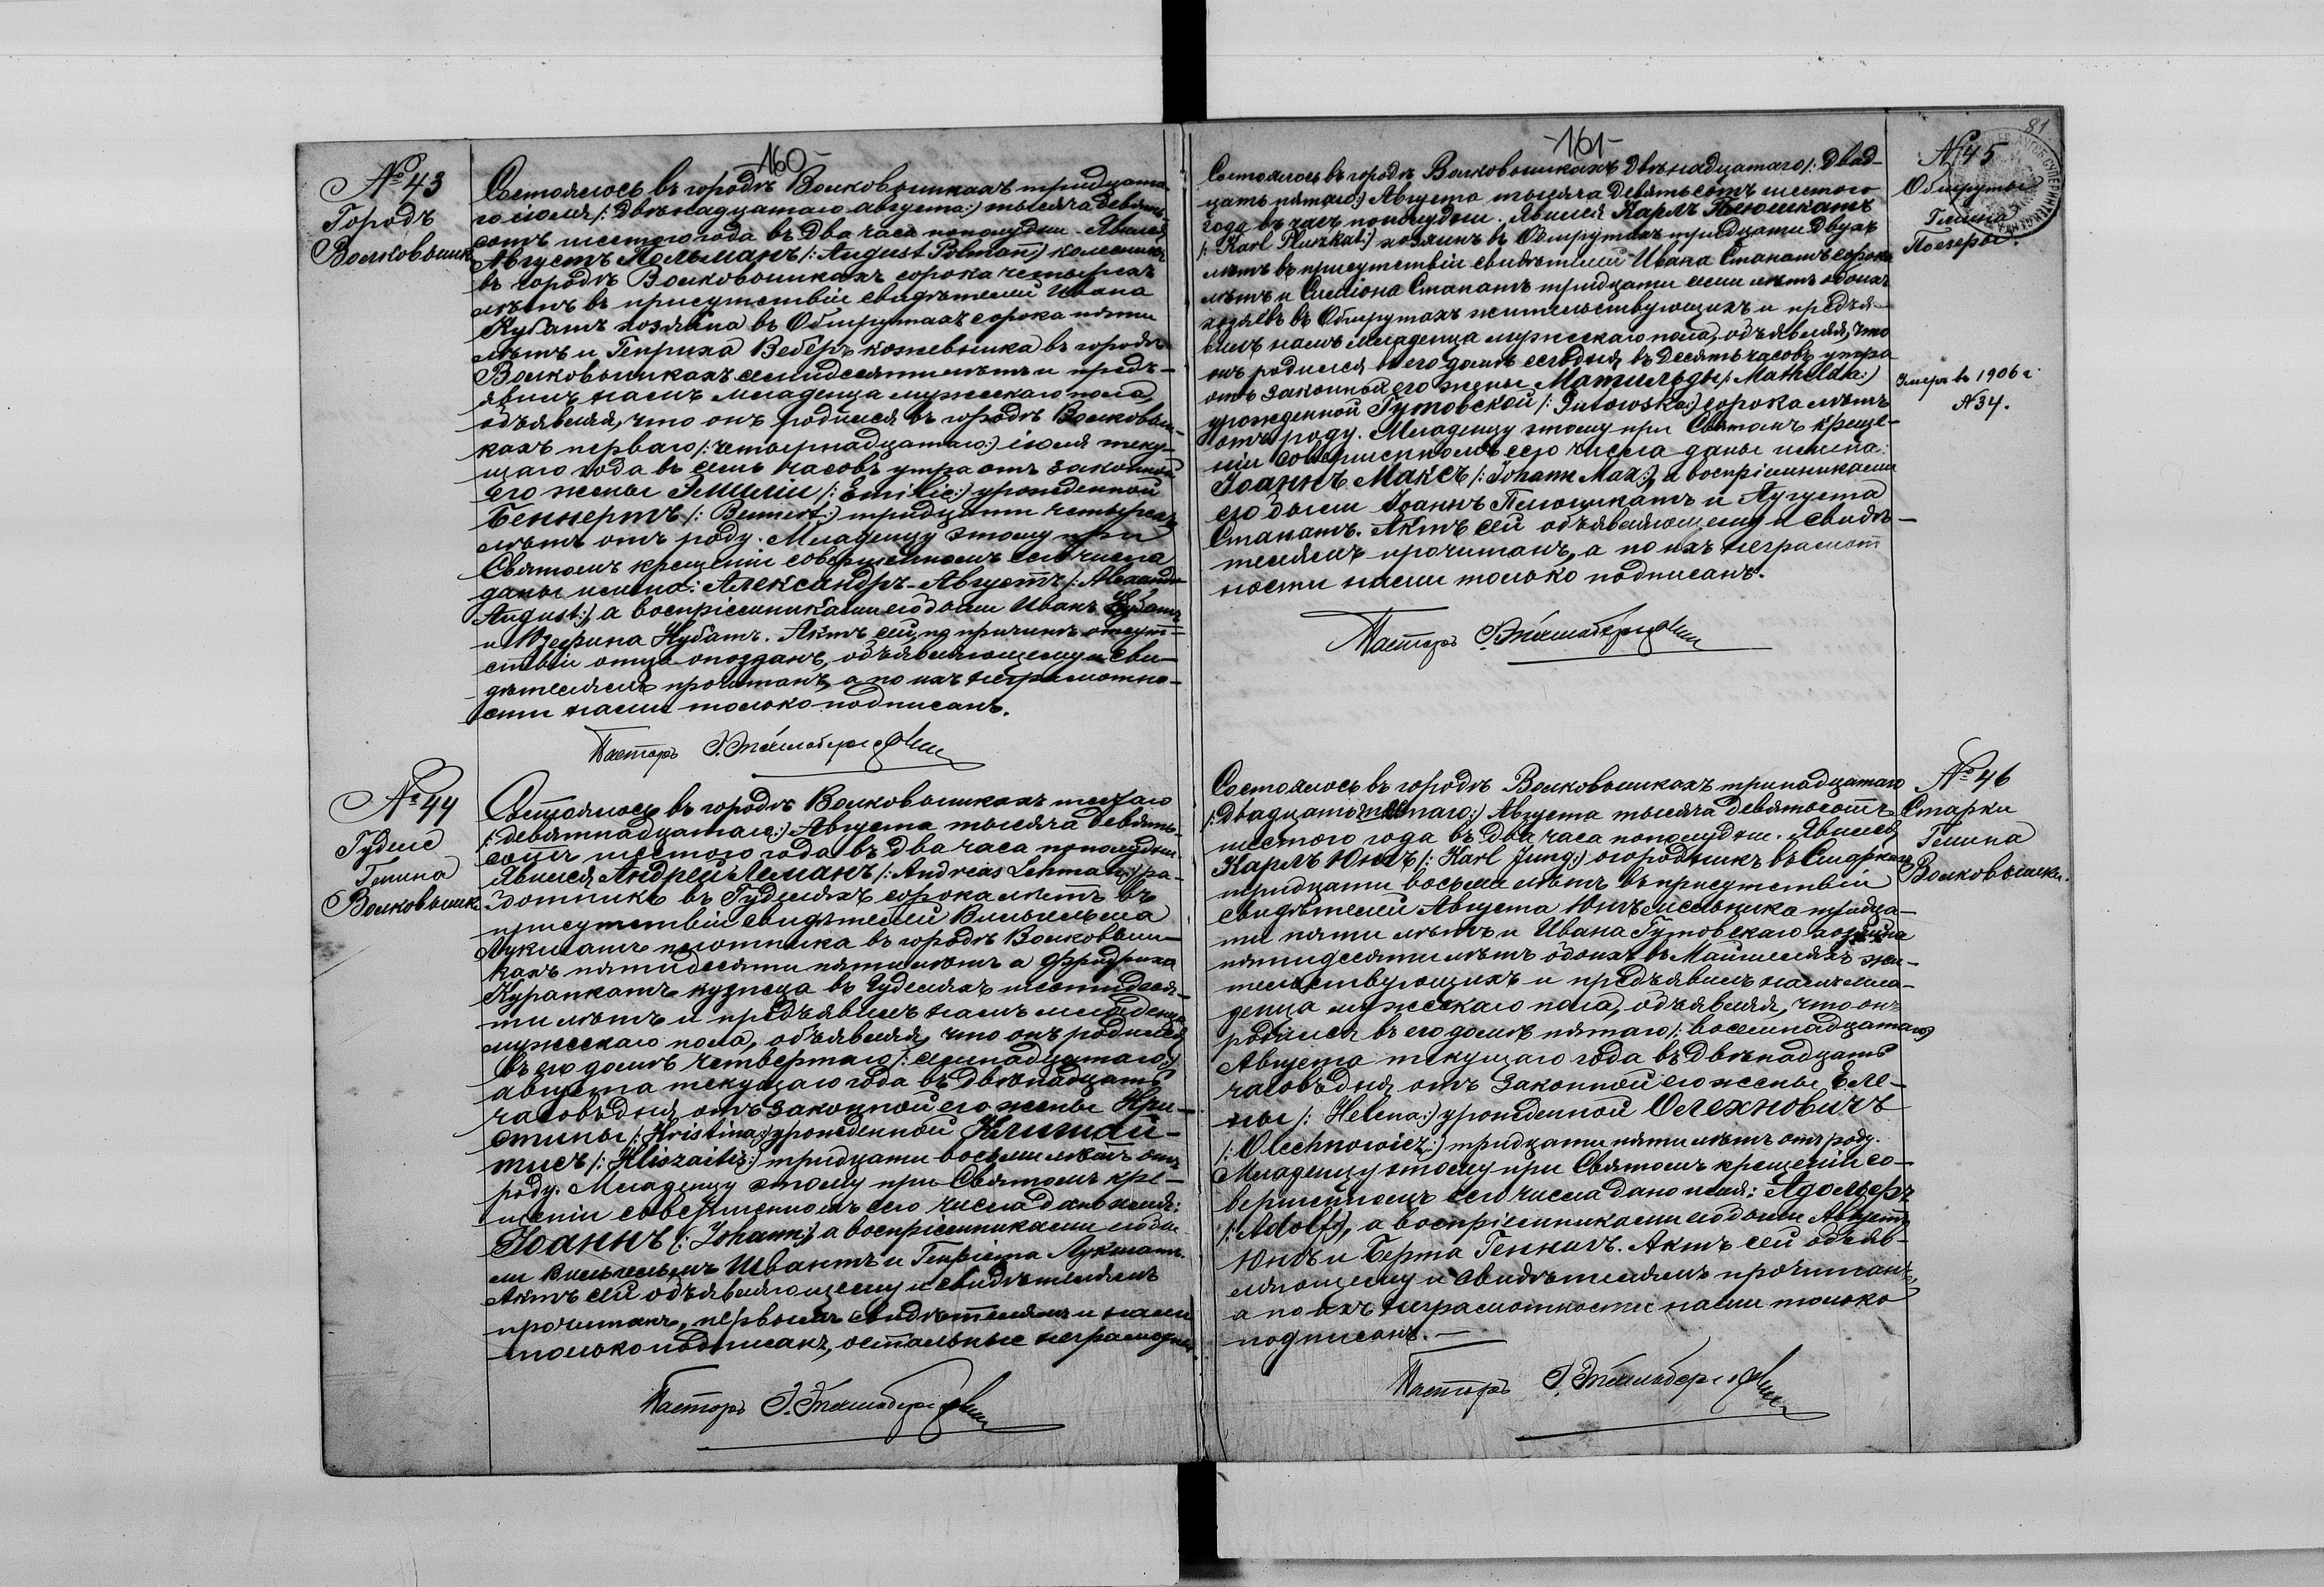 160-
№ 43
Городъ
Волковышки
Состоялось въ городѣ Волковышкахъ тридцата-
го іюля /: двѣнадцатаго августа :/ тысяча девять-
сотъ шестого года въ два часа пополудни. Явился
Августъ Польманъ /: August Polman :/ колесникъ
въ городѣ Волковышкахъ сорока четырехъ
лѣтъ въ присутствіи свидѣтелей Ивана
Кубатъ хозяина въ Обшрутахъ сорока пяти
лѣтъ и Генриха Веберъ кожевника въ городѣ
Волковышкахъ семидесяти лѣтъ и предъ-
явилъ намъ младенца мужескаго пола,
объявляя, что онъ родился въ городѣ Волковыш-
кахъ перваго /: четырнадцатаго :/ іюля теку-
щаго года въ семь часовъ утра отъ законной
его жены Эмиліи /: Emilie :/ урожденной
Беннертъ /: Bennert :/ тридцати четырехъ
лѣтъ отъ роду. Младенцу этому при
Святомъ крещеніи совершенномъ сего числа
даны имена: Александръ-Августъ /: Alexander
August :/, а воспріемниками его были Иванъ Кубатъ
и Кубатъ. Актъ сей, по причинѣ отсут-
ствіи отца опозданъ, объявляющему и сви-
дѣтелямъ прочитанъ, а по ихъ неграмотно-
сти нами только подписанъ.
Пасторъ
№ 44
Гуделе
Гмина
Волковышки
Состоялось въ городѣ Волковышкахъ шестаго
/: девятнадцатаго :/ Августа тысяча девять-
сотъ шестого года въ два часа пополудни.
Явился Андрей Леманъ /: Andreas Lehman :/ ра-
ботникъ въ Гуделяхъ сорока лѣтъ въ
присутствіи свидѣтелей Вильгельма
Лукшатъ плотника въ городѣ Волковыш-
кахъ пятидесяти пяти лѣтъ а Фридриха
Курапкатъ кузнеца въ Гуделяхъ шестидеся-
ти лѣтъ и предъявилъ намъ младенца
мужескаго пола, объявляя, что онъ родился
въ его домѣ четвертаго /: семнадцатаго :/
августа текущаго года въ двѣнадцать
часовъ дня отъ законной его жены Кри-
стины /: Kristina :/ урожденной Клишай-
тисъ /: Kliszaitis :/ тридцати восьми лѣтъ отъ
роду. Младенцу этому при Святомъ кре-
щеніи совершенномъ сего числа дано имя:
Іоаннъ /: Johann :/, а воспріемниками его бы-
ли Вильгельмъ Швантъ и Генріета Лукшатъ.
Актъ сей объявляющему и свидѣтелямъ
прочитанъ, первымъ свидѣтелемъ и нами
только подписанъ, остальные неграмотны.
Пасторъ
-161-
81
№ 45
Обшруты
Гмина

Умеръ въ 1906 г.
№ 34.
Состоялось въ городѣ Волковышкахъ двѣнадцатаго /: двад-
цать пятаго :/ Августа тысяча девятьсотъ шестого
года въ часъ пополудни. Явился Карлъ Плюшкатъ
/: Karl Pluszkat :/ хозяинъ въ Обшрутахъ тридцати двухъ
лѣтъ въ присутствіи свидѣтелей Ивана Станатъ сорока
лѣтъ и Симіона Станатъ тридцати семи лѣтъ обоихъ
хозяевъ въ Обшрутахъ жительствующихъ и предъя-
вилъ намъ младенца мужескаго пола, объявляя, что
онъ родился въ его домѣ сегодня въ десять часовъ утра
отъ законной его жены Матильды /: Mathilda :/
урожденной Гутовской /: Gutowska :/ сорока лѣтъ
отъ роду. Младенцу этому при Святомъ креще-
ніи совершенномъ сего числа даны имена:
Іоаннъ Максъ /: Johann Max :/, а воспріемниками
его были Іоаннъ Плюшкатъ и Аугуста
Станатъ. Актъ сей объявляющему и свидѣ-
телямъ прочитанъ, а по ихъ неграмот-
ности нами только подписанъ.
Пасторъ
№ 46
Старки
Гмина
Волковышки.
Состоялось въ городѣ Волковышкахъ тринадцатаго
/: двадцать шестаго :/ Августа тысяча девятьсотъ
шестого года въ два часа пополудни. Явился
Карлъ Юнгъ /: Karl Jung :/ огородникъ въ Старкахъ
тридцати восьми лѣтъ въ присутствіи
свидѣтелей Августа Юнгъ мельника тридца-
ти пяти лѣтъ и Ивана Гутовскаго хозяина
пятидесяти лѣтъ обоихъ въ жи-
тельствующихъ и предъявилъ намъ мла-
денца мужескаго пола, объявляя, что онъ
родился въ его домѣ пятаго /: восемнадцатаго :/
Августа текущаго года въ двѣнадцать
часовъ дня отъ законной его жены Еле-
ны /: Helena :/ урожденной Олехновичъ
/: Olechnowicz :/ тридцати пяти лѣтъ отъ роду.
Младенцу этому при Святомъ крещеніи со-
вершенномъ сего числа дано имя: Адольфъ
/: Adolf :/, а воспріемниками его были Августъ
Юнгъ и Берта Геннигъ. Актъ сей объяв-
ляющему и свидѣтелямъ прочитанъ,
а по ихъ неграмотности нами только
подписанъ. —
Пасторъ